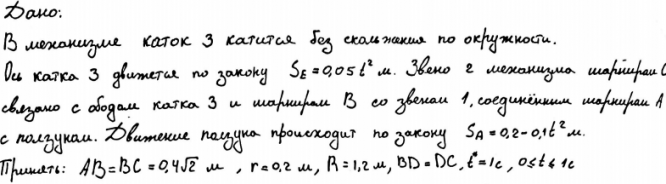 Дано:
В механизме каток 3 катится без скольжения по окружности.
Ось катка 3 движется по закону S_E = 0,05 t² м. Звено 2 механизма шарниром C
связано с ободом катка 3 и шарниром B со звеном 1, соединённым шарниром A
с ползуном. Движение ползуна происходит по закону S_A = 0,2 - 0,1t² м.
Принять: AB = BC = 0,4√2 м, r = 0,2 м, R = 1,2 м, BD = DC, t* = 1c, 0 ≤ t ≤ 1c